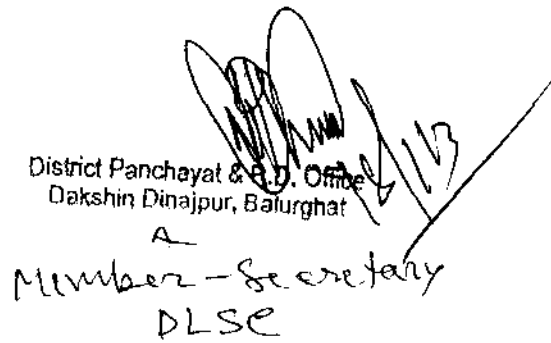 District Panchayat & R.D. Office
Dakshin Dinajpur, Balurghat
&
Member-Secretary
DLSC